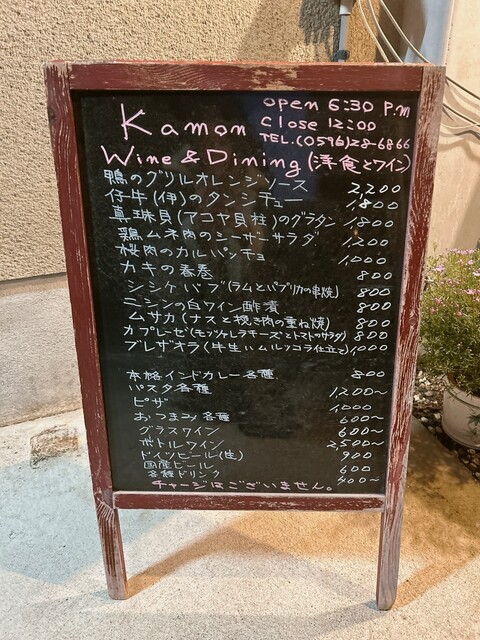 Kamon
open 6:30 P.M
close 12:00
TEL.(0596)28-6866
Wine & Dining (洋食とワイン)
鴨のグリルオレンジソース 2,200
仔牛(伊)のタンシチュー 1,800
真珠貝(アコヤ貝柱)のグラタン 1,800
鶏ムネ肉のシーザーサラダ 1,200
桜肉のカルパッチョ 1,000
カキの春巻 800
シシケバブ(ラムとパプリカの串焼) 800
ニシンの白ワイン酢漬 800
ムサカ(ナスと挽き肉の重ね焼) 800
カプレーゼ(モッツァレラチーズとトマトのサラダ) 800
ブレザオラ(牛生ハムルッコラ仕立て) 1,000
本格インドカレー各種 800
パスタ各種 1,200~
ピザ 1,000
おつまみ各種 600~
グラスワイン 600~
ボトルワイン 2,500~
ドイツビール(生) 900
国産ビール 600
各種ドリンク 400~
チャージはございません。